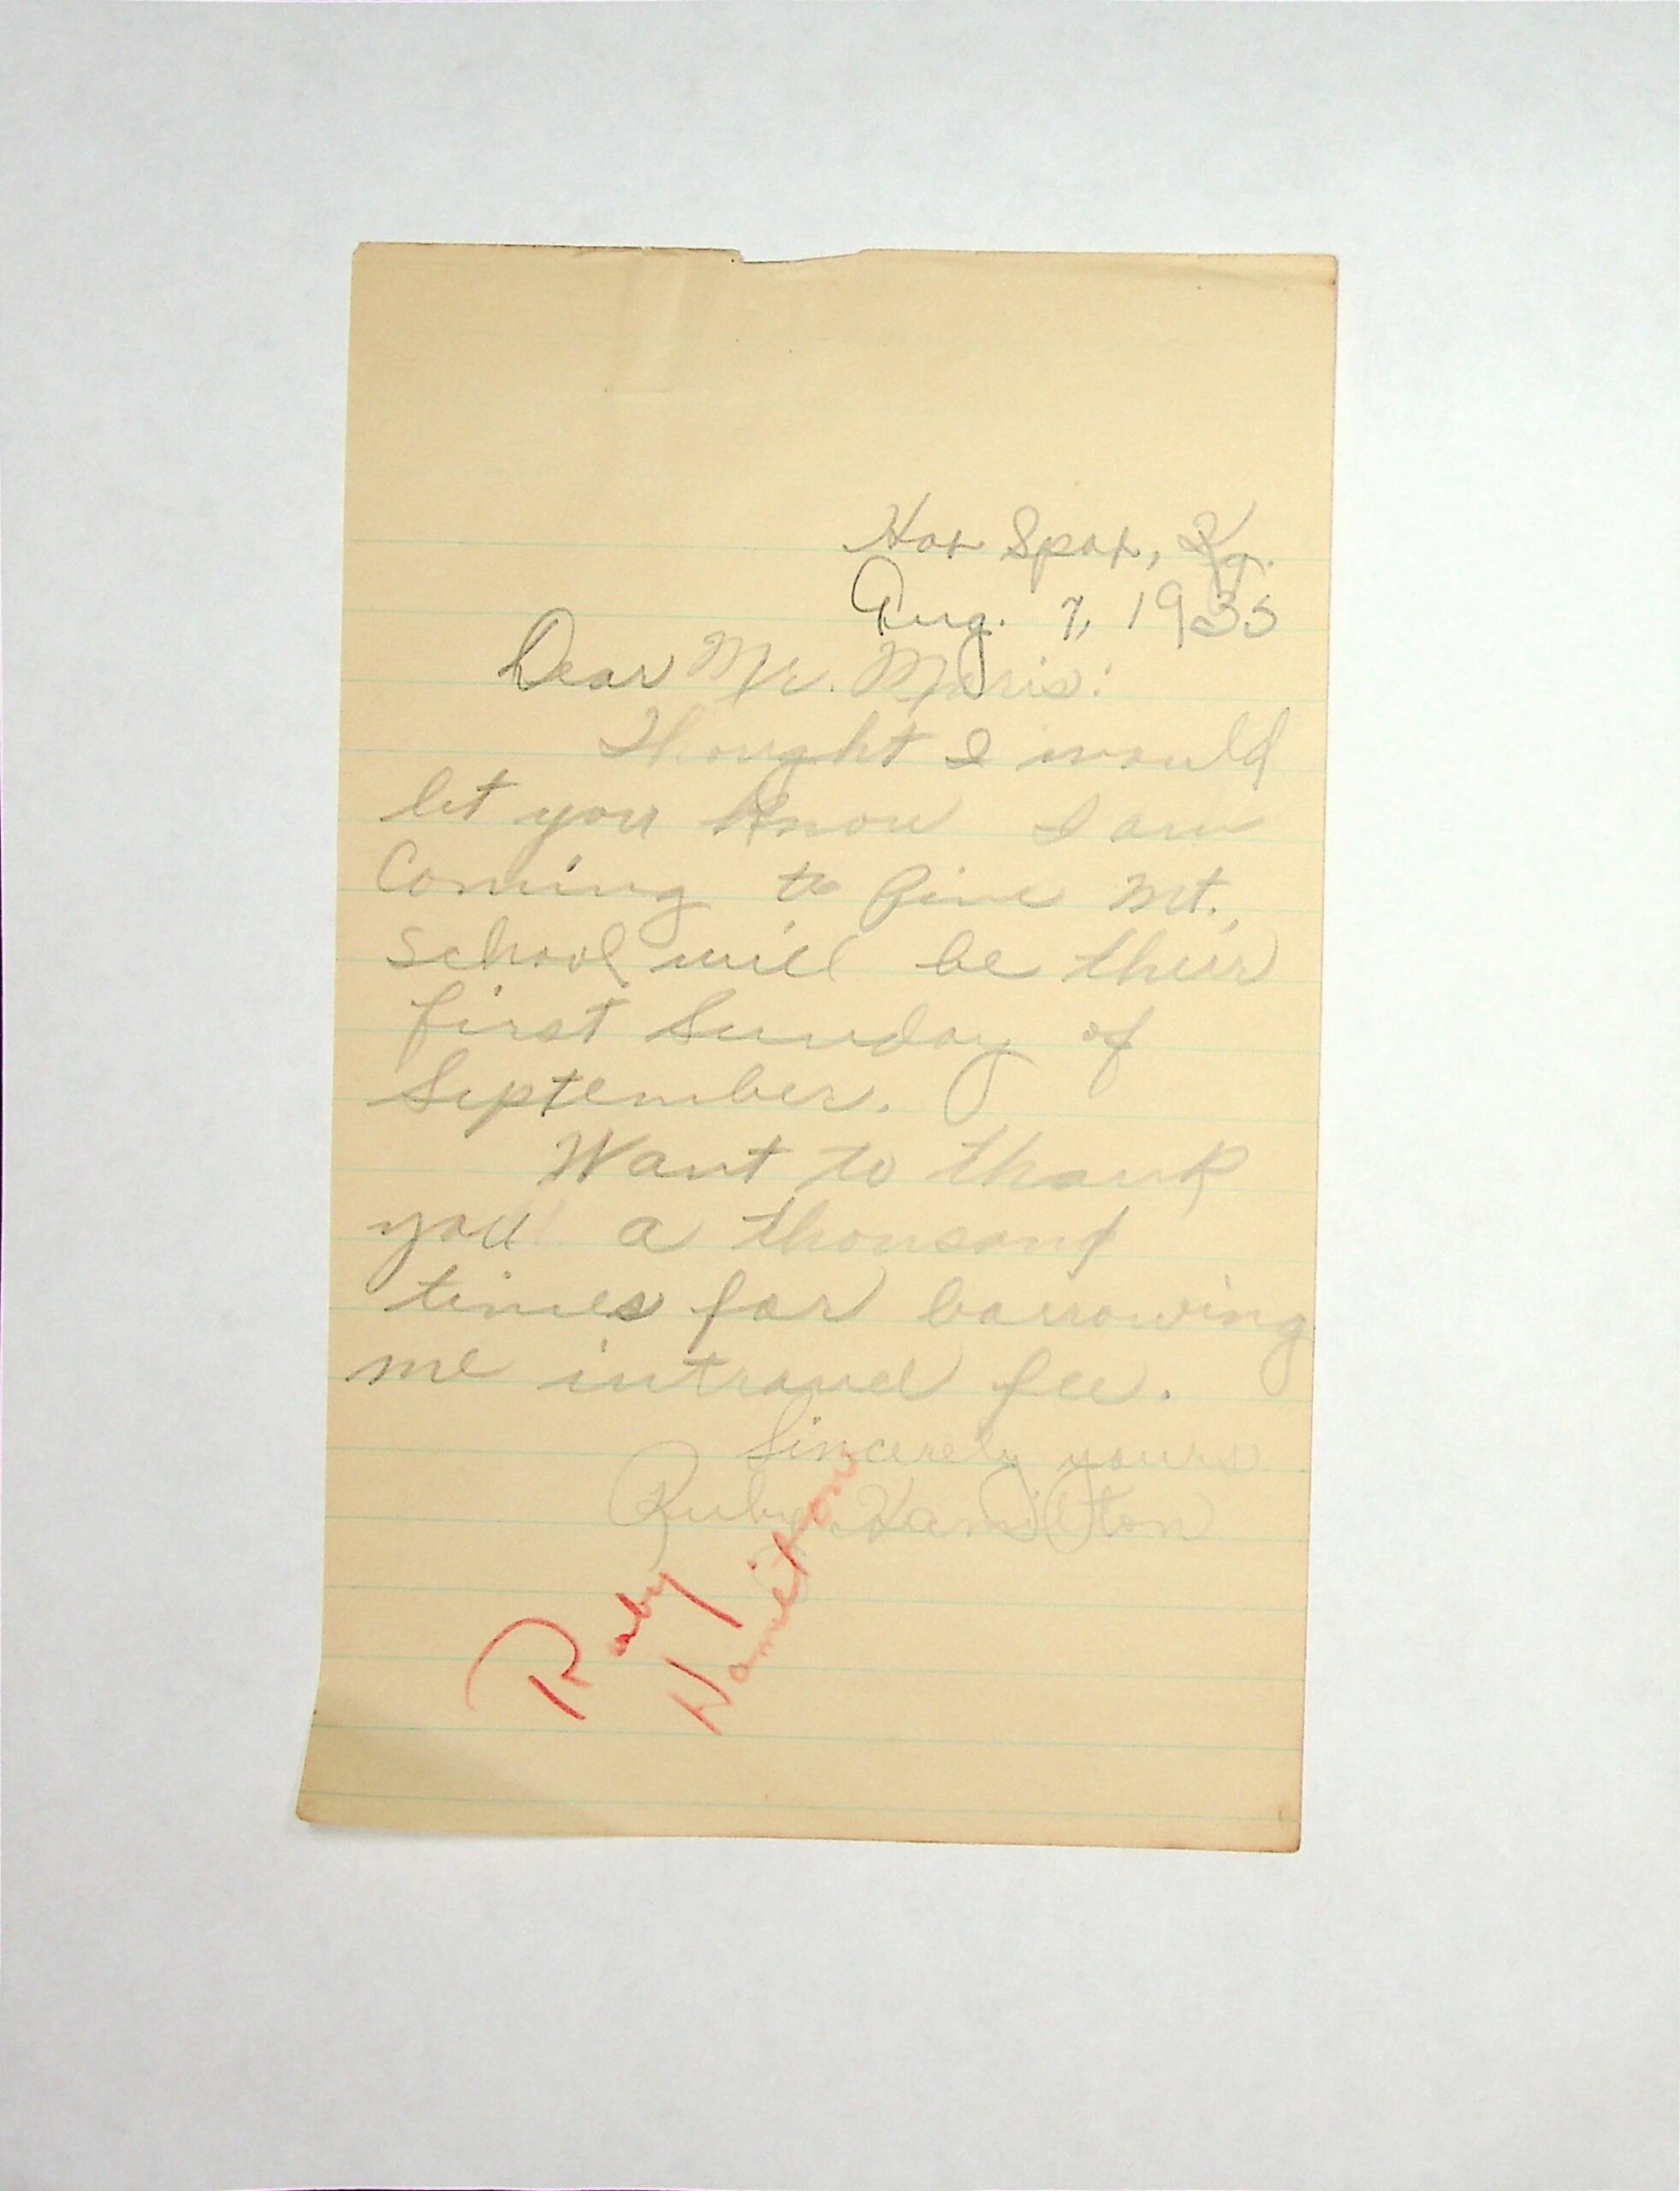 Hot Spot, Ky.
Aug. 7, 1935
Dear Mr. Moris:
Thought I would
let you know I am
Coming to Pine Mt.,
school will be their
first Sunday of
September.
Want to thank
you a thousand
times for borrowing
me intraned fee.
Sincerely yours
Ruby Hamilton
Ruby
Hamilton